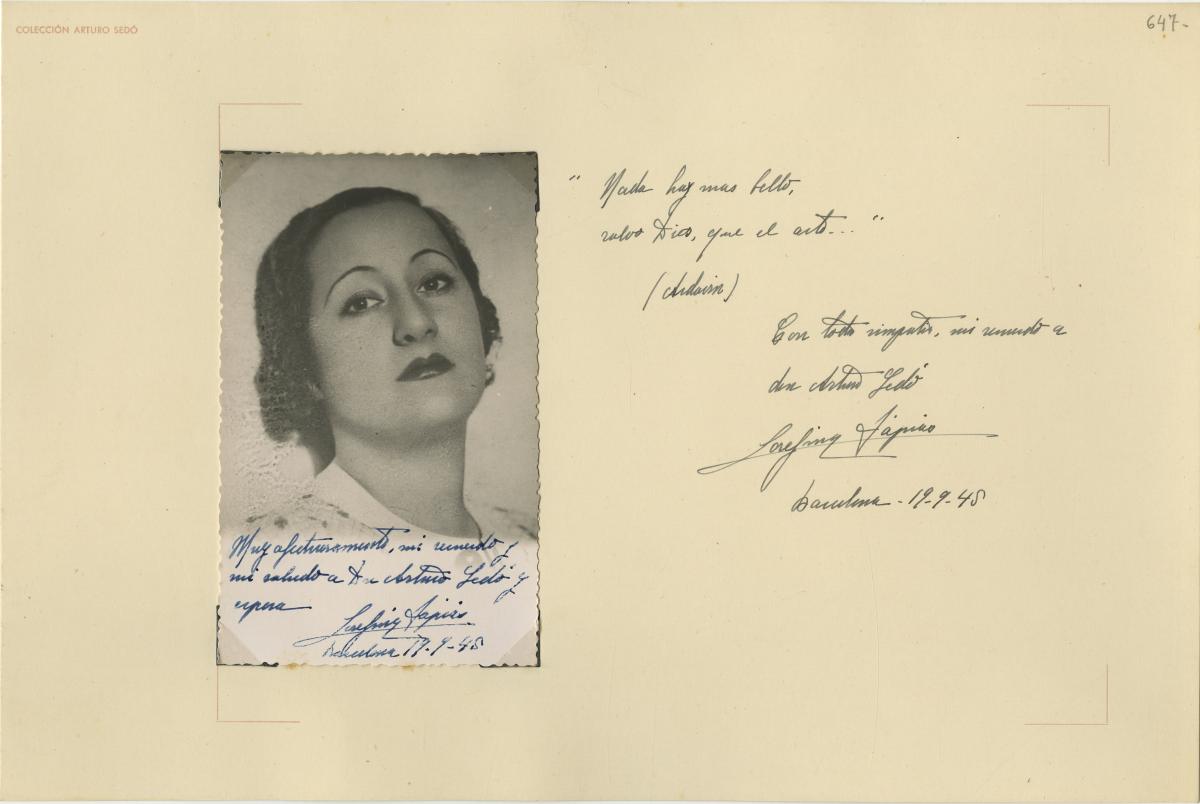 COLECCIÓN ARTURO SEDÓ
647-
" Nada hay mas bello,
salvo Dios, que el arte... "
Con toda simpatia, mi recuerdo a
don Arturo Sedó
Josefina Tápias
Barcelona - 19-9-45
Muy afectuosamente, mi recuerdo y
mi saludo a Dn Arturo Sedó y
esposa
Josefina Tápias
Barcelona 19-9-45